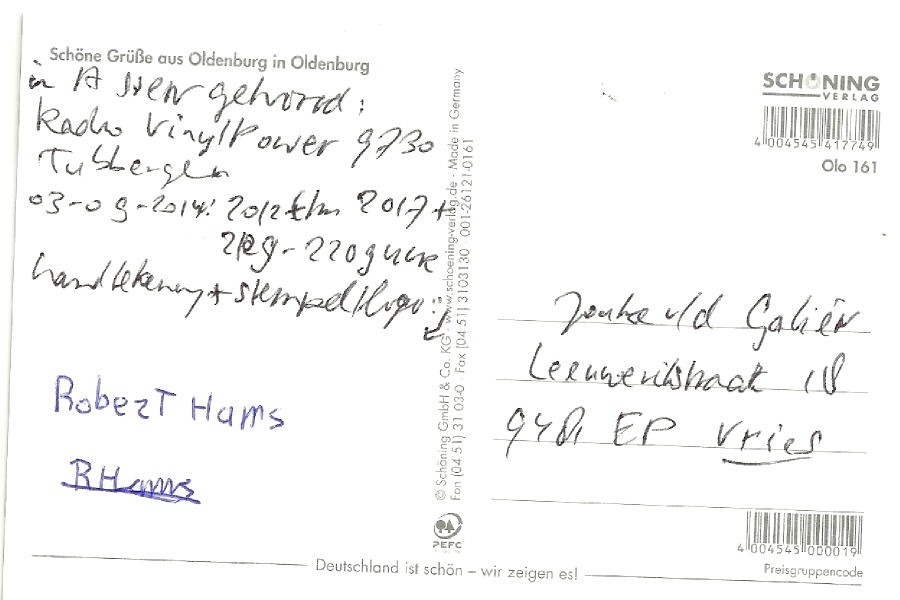 Schöne Grüße aus Oldenburg in Oldenburg
in Assen gehoord:
Radio VinylPower 9730
Tubbergen
03-09-2014: 2012 t/m 2017 +
handtekening + stempel/logo:
Robert Hams
RHams
© Schöning GmbH & Co. KG · www.schoening-verlag.de · Made in Germany
Fon [04 51] 31 03-0 · Fax [04 51] 3103130 · 001-26121-0161
PEFC
SCHÖNING
VERLAG
4 004545 417749
Olo 161
v/d Galiën
Leeuwerikstraat 18
9481 EP Vries
4 004545 000019
Preisgruppencode
Deutschland ist schön – wir zeigen es!